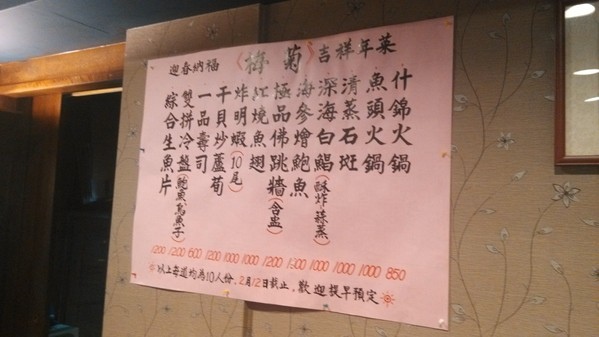 迎春納福 《梅菊》 吉祥年菜
什錦火鍋 850
魚頭火鍋 1000
清蒸石斑 1000
深海白鯧(酥炸 蒜蒸) 1000
海參燴鮑魚
極品佛跳牆(含盅) 1200
紅燒魚翅 1000
炸明蝦(10尾) 1000
干貝炒蘆荀 1200
一品壽司 600
雙拼冷盤(鮑魚 烏魚子) 1200
綜合生魚片 1200
※以上每道均為10人份.2月12日截止.歡迎提早預定※